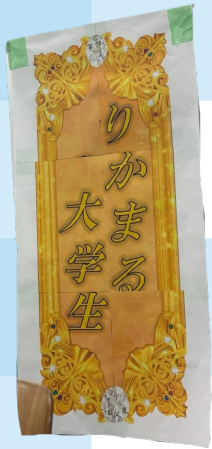 りかまる
大学生